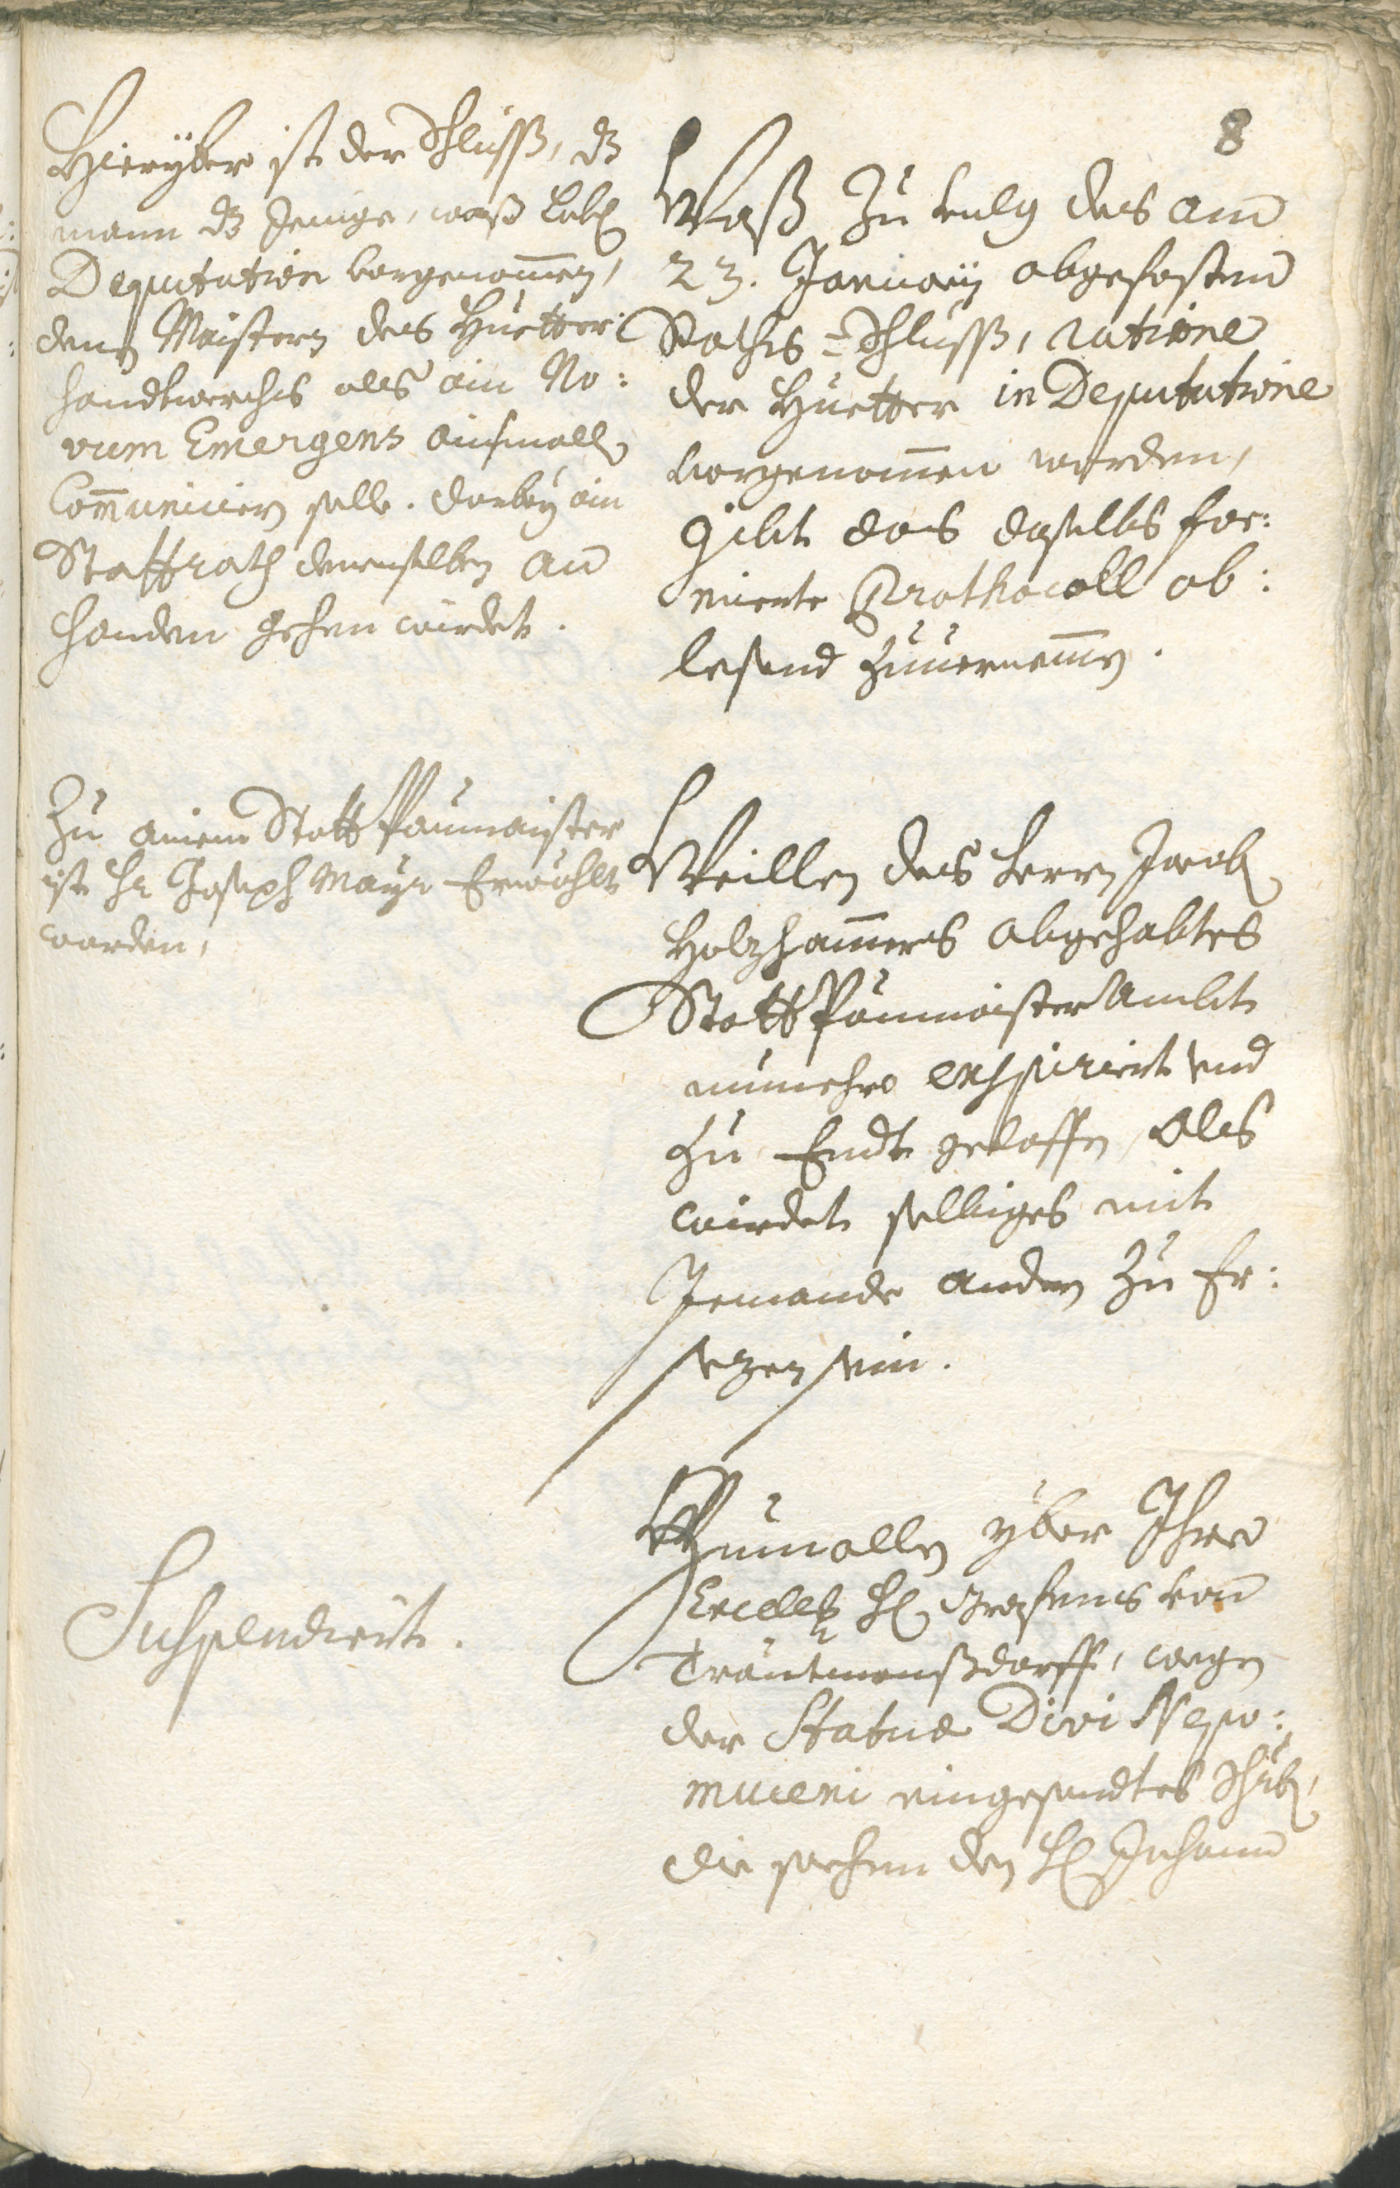 8
Hierÿber ist der Schluss, dz
mann dz Jenige, was Lobl
Deputation vorgenom̄en,
denen Maistern des Huetter:
handtwerchs als ain No:
vum Emergens ainsmalls
Com̄uniciern solle. darbeÿ ein
Stattrath denenselben an
handen gehen wirdet.
Waß Zu volg des am
23. Januarÿ abgefasten
Raths-Schluss, ratione
der Huetter in Deputatione
vorgenom̄en worden,
gibt das daselbs for:
mierte Prothocoll ab:
lesend zuuernem̄en.
Zu ainem Statt Paumaister
ist Hr Joseph Mayr Erwöhlt
worden,
Weillen des herrn Jacob
Holzham̄ers abgehabtes
Statt Paumaister Ambt
nunmehro expiriert vnd
zu Endt geloffen, Als
wirdet selbiges mit
Jemande andern Zu Er:
sezen sein.
Suspendiert.
Zumallen yber Ihro
Excellz H Grafens von
Trautmanßdorff, wegen
der Statuæ Divi Nepo:
muceni eingesandtes Schrb,
die sachen den H Johann